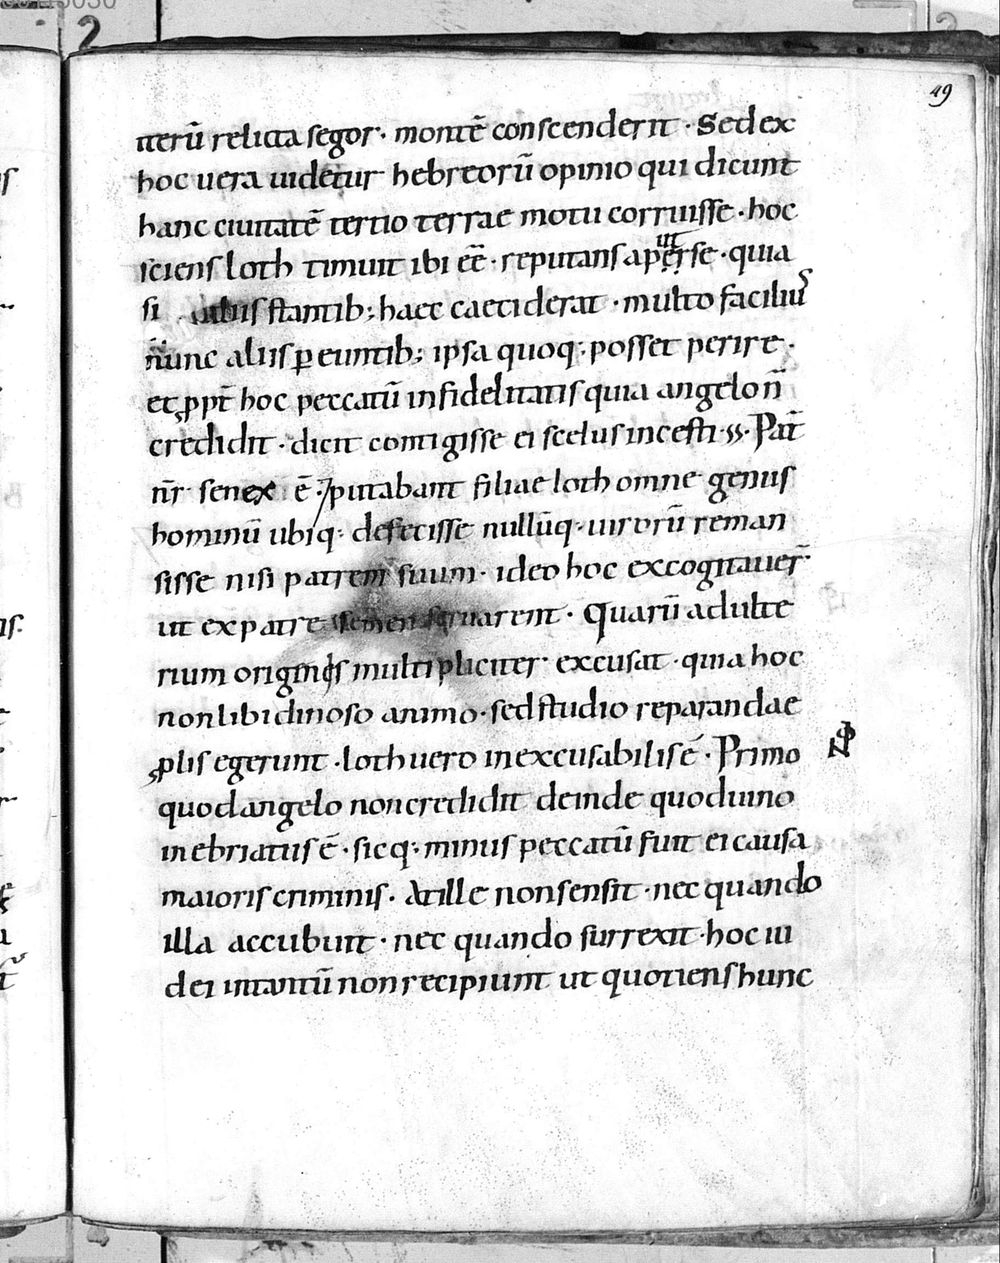 49
iterū relicta segor· montē conscenderit· Sed ex
hoc uera uidetur hebreorū opinio qui dicunt
hanc ciuitatē tertio terrae motu corruisse· hoc
sciens loth timuit ibi eē· reputans aperse· quia
si stantib; haec caeciderat· multo facilius
nunc aliis ꝑeuntib; ipsa quoq; posset perire·
et ꝓpt̄ hoc peccatū infidelitatis quia angelo n̄
credidit· dicit contigisse ei scelus incesti· Pat̄
nr̄ senex ē· putabant filiae loth omne genus
hominū ubiq; defecisse nullūq; uirorū reman
sisse nisi patrem suum· ideo hoc excogitauer̄
ut ex patre semen seruarent· Quarū adulte
rium origines multipliciter excusat· quia hoc
non libidinoso animo· sed studio reparandae
ꝓlis egerunt· loth uero inexcusabilis ē· Primo
quod angelo non credidit deinde quod uino
inebriatus ē· sicq; minus peccatū fuit ei causa
maioris criminis· At ille non sensit· nec quando
illa accubuit· nec quando surrexit· hoc iu
dei intantū non recipiunt ut quotiens hunc